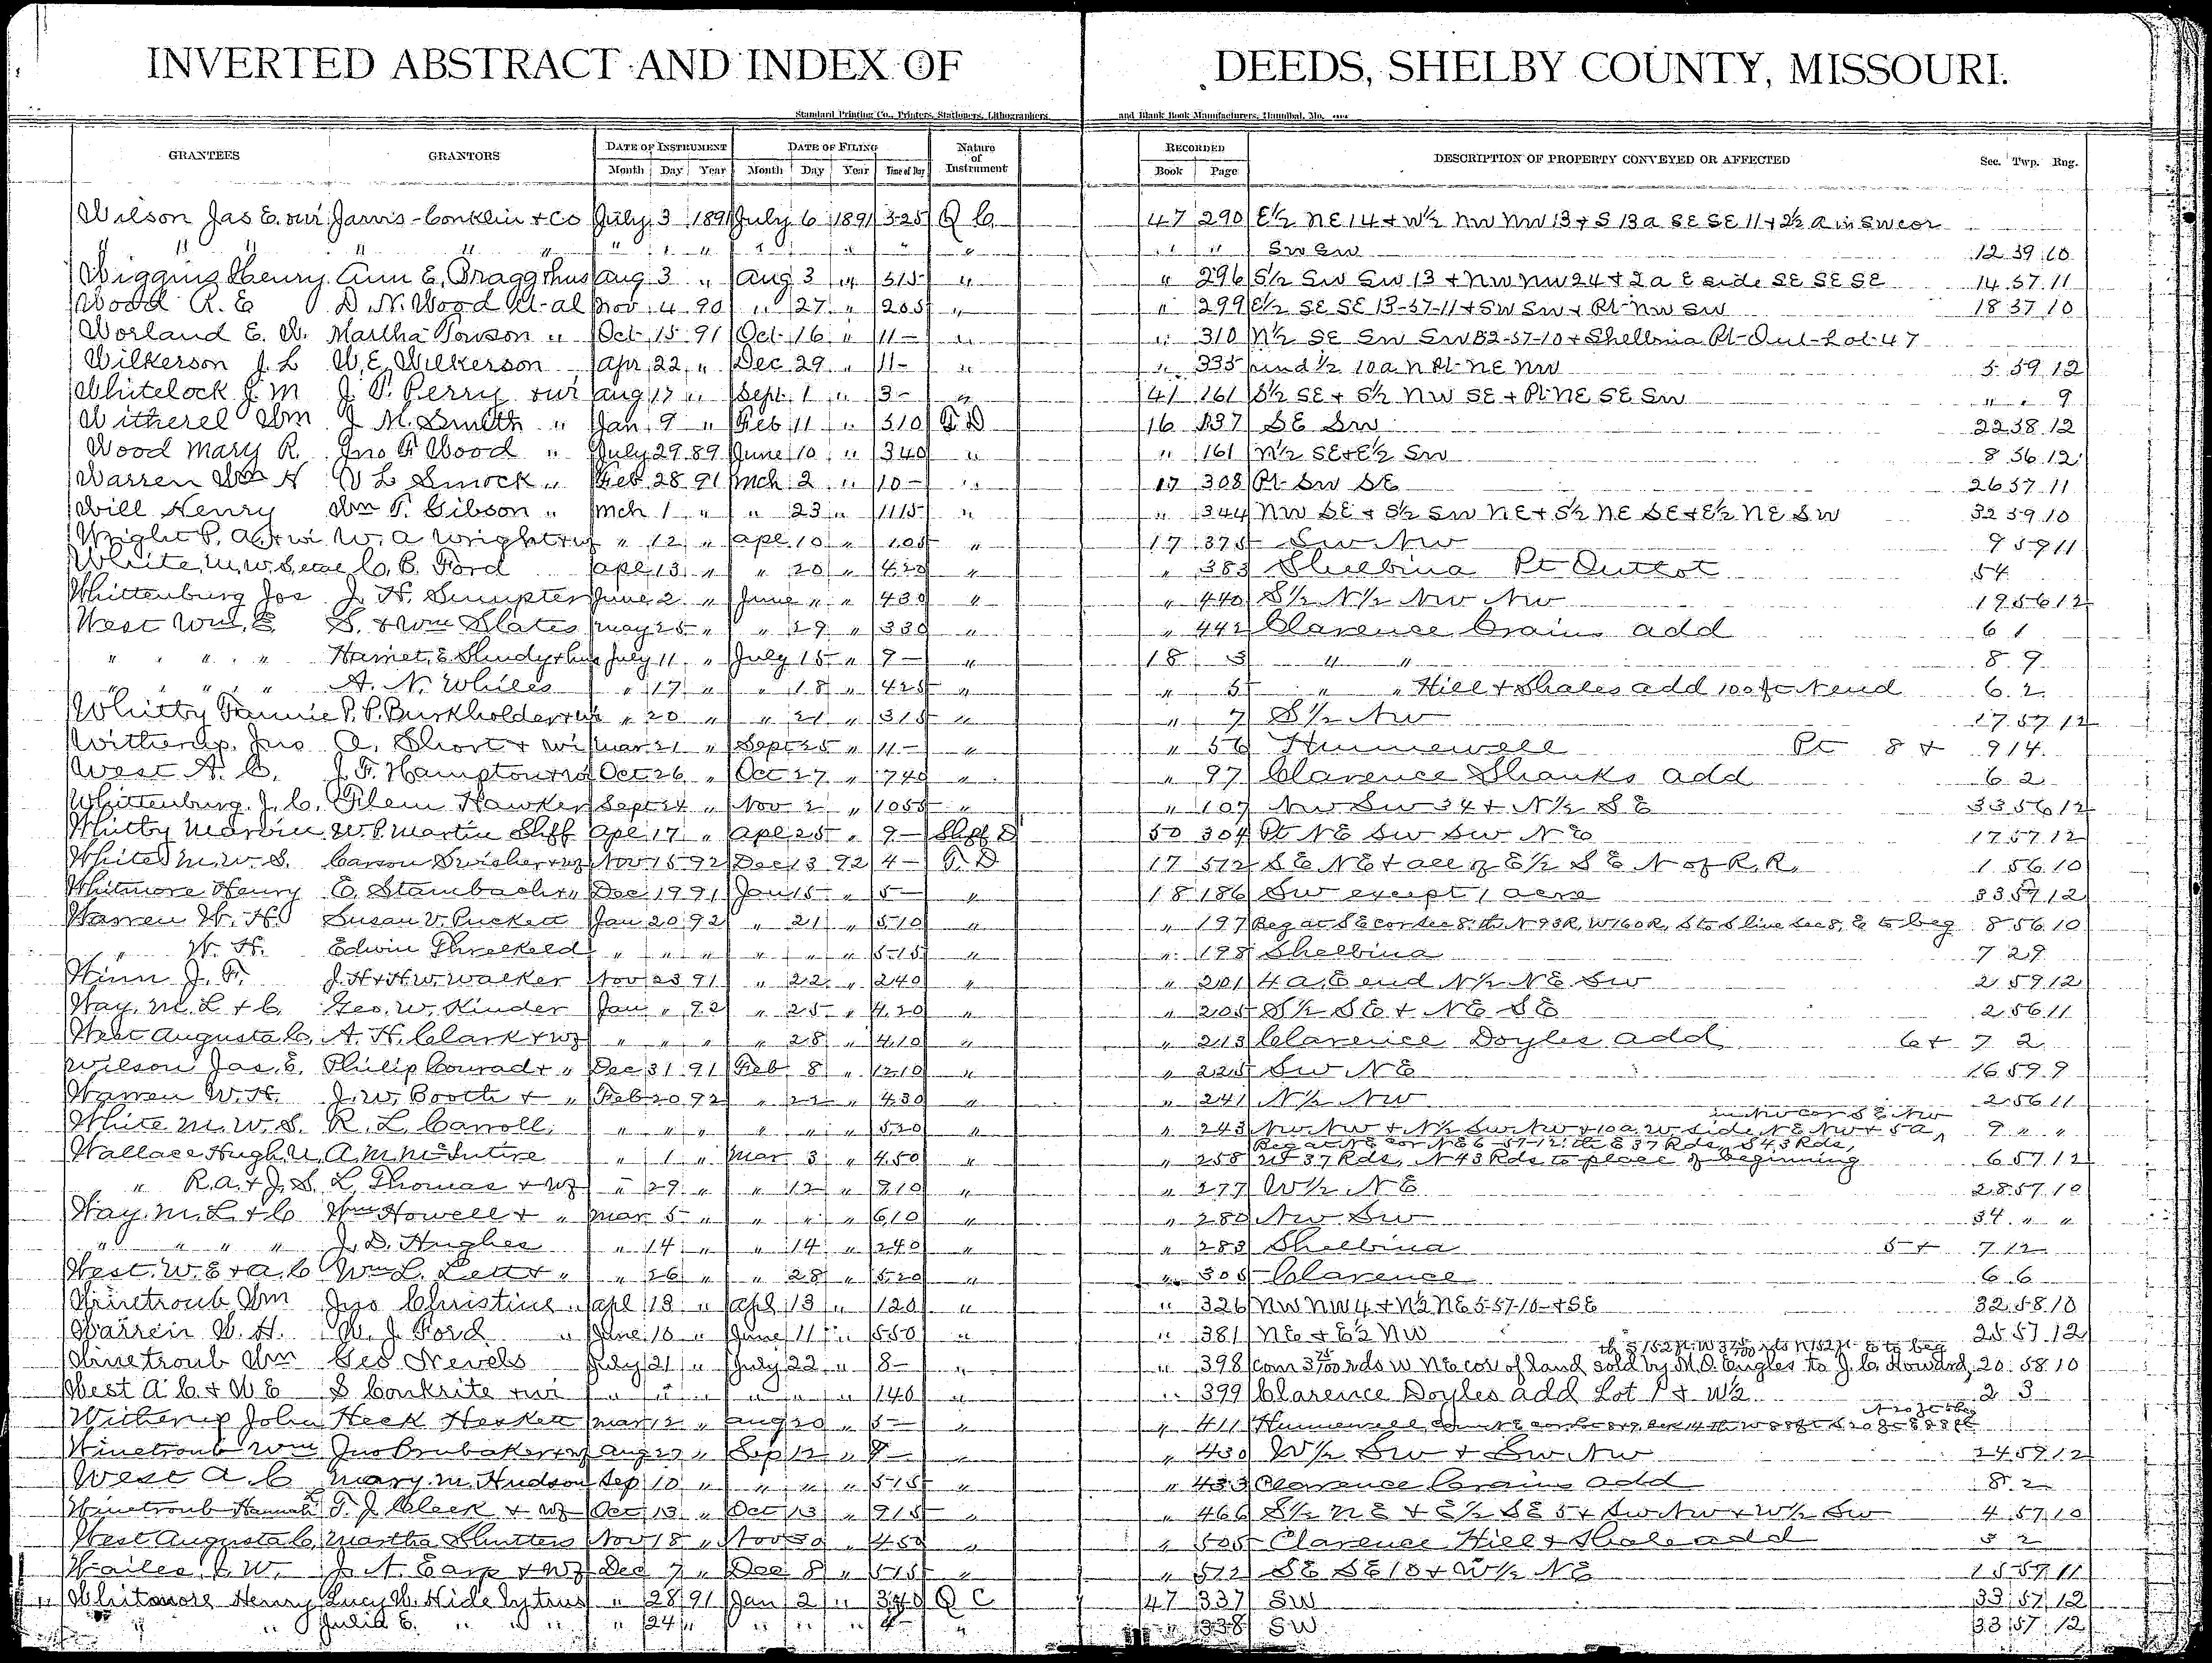 INVERTED ABSTRACT AND INDEX OF DEEDS, SHELBY COUNTY, MISSOURI.
Standard Printing Co., Printers, Stationers, Lithographers and Blank Book Manufacturers, Hannibal, Mo.
GRANTEES GRANTORS DATE OF INSTRUMENT DATE OF FILING Nature of Instrument RECORDED DESCRIPTION OF PROPERTY CONVEYED OR AFFECTED Sec. Twp. Rng.
Month Day Year Month Day Year Time of Day Book Page
Wilson Jas E. & wi Jarvis-Conklin & Co July 3 1891 July 6 1891 325 Q C 47 290 E½ NE 14 & W½ NW NW 13 & S 13a SE SE 11 & 2½ a in SW cor
" " " " " " " " " " " " " " " " SW SW 12 59 10
Wiggins Henry Ann E. Bragg & hus Aug 3 " Aug 3 " 315 " " 296 S½ SW SW 13 & NW NW 24 & 2a E side SE SE SE 14 57 11
Wood R. E D. N. Wood et-al Nov 4 90 " 27 " 205 " " 299 E½ SE SE 13-57-11 & SW SW & Pt- NW SW 18 57 10
Worland E. W. Martha Towson " Oct 15 91 Oct 16 " 11- " " 310 N½ SE SW SW 32-57-10 & Shelbina Pt- Out-Lot 47
Wilkerson J. L W. E. Wilkerson Apr 22 " Dec 29 " 11- " " 335 und ½ 10a N Pt- NE NW 5 59 12
Whitelock J. M J. T. Perry & wi Aug 17 " Sept 1 " 3- " 41 161 S½ SE & S½ NW SE & Pt- NE SE SW " " 9
Witherel Wm J. M. Smith " Jan 9 " Feb 11 " 310 T. D 16 137 SE SW 22 58 12
Wood Mary R. Jno F Wood " July 29 89 June 10 " 340 " " 161 N½ SE & E½ SW 8 56 12
Warren Wm H V L Smock " Feb 28 91 Mch 2 " 10- " 17 308 Pt- SW SE 26 57 11
Will Henry Wm T. Gibson " Mch 1 " " 23 " 1115 " " 344 NW SE & S½ SW NE & S½ NE SE & E½ NE SW 32 59 10
Wright P. A. & wi W. A Wright & wf " 12 " Apl 10 " 105 " 17 375 SW NW 9 59 11
White M. W. S. C. B. Ford Apl 13 " " 20 " 420 " " 383 Shelbina Pt Outlot 54
Whittenburg Jos J. H. Sumpter June 2 " June " " 430 " " 440 S½ N½ NW NW 19 56 12
West Wm. E S. & Wm Slates May 25 " " 29 " 330 " " 442 Clarence Crains add 6 1
" " " " Harriet E Shudy & hus July 11 " July 15 " 9- " 18 3 " " 8 9
" " " " A. N. Whiles " 17 " " 18 " 425 " " 5 " " Hill & Shales add 100 ft N end 6 2
Whitby Fannie P. P. Burkholder & wi " 20 " " 21 " 315 " " 7 S½ NW 17 57 12
Witherup, Jno A. Short & wi Mar 21 " Sept 25 " 11- " " 56 Hunnewell Pt 8 & 9 14
West A. C. J. F. Hampton & wi Oct 26 " Oct 27 " 740 " " 97 Clarence Shanks add 6 2
Whittenburg J. C. Filem Hawker Sept 24 " Nov 2 " 1055 " " 107 NW SW 34 & N½ SE 33 56 12
Whitby Marvin W. P. Martin Shff Apl 17 " Apl 25 " 9- Shff D 50 304 Pt NE SW SW NE 17 57 12
White M. W. S. Carson Swisher & wf Nov 15 92 Dec 13 92 4- T. D 17 572 SE NE & all of E½ SE N of R. R. 1 56 10
Whitmore Henry E. Stambach & " Dec 19 91 Jan 15 " 5- " 18 186 SW except 1 acre 33 57 12
Warren W. H. Susan V. Puckett Jan 20 92 " 21 " 510 " " 197 Beg at SE cor sec 8, th N 93R, W 160R, S to S line sec 8, E to beg 8 56 10
" W. H. Edwin Threlkeld " " " " " " 515 " " 198 Shelbina 7 29
Winn J. F. J. H & H. W. Walker Nov 23 91 " 22 " 240 " " 201 4 a. E end N½ NE SW 2 59 12
Way, M. L & C. Geo. W. Kinder Jan " 92 " 25 " 420 " " 205 S½ SE & NE SE 2 56 11
West Augusta C. A. H. Clark & wf " " " " 28 " 410 " " 213 Clarence Doyles add 6 & 7 2
Wilson Jas. E. Philip Conrad & " Dec 31 91 Feb 8 " 1210 " " 225 SW NE 16 59 9
Warren W. H. J. W. Booth & " Feb 20 92 " 22 " 430 " " 241 N½ NW 2 56 11
White M. W. S. R. L. Carroll " " " " " " 520 " " 243 NW NW & N½ SW NW & 10a W side NE NW & 5a, in NW cor SE NW 9 " "
Wallace Hugh U. A. M. McIntire " 1 " Mar 3 " 450 " " 258 Beg at NE cor NE 6-57-12, th E 37 Rds, S 43 Rds, W 37 Rds, N 43 Rds to place of beginning 6 57 12
" R. A. & J. S. L. Thomas & wf " 29 " " 12 " 910 " " 277 W½ NE 28 57 10
Way M. L & C Wm Howell & " Mar 5 " " " " 610 " " 280 NW SW 34 " "
" " " " J. D. Hughes " 14 " " 14 " 240 " " 283 Shelbina 5 & 7 12
West. W. E & A. C Wm L. Lett & " " 26 " " 28 " 520 " " 305 Clarence 6 6
Winetroub Wm Jno Christine " Apl 13 " Apl 13 " 120 " " 326 NW NW 4 & N½ NE 5-57-10- & SE 32 58 10
Warren W. H. W. J. Ford " June 10 " June 11 " 550 " " 381 NE & E½ NW 25 57 12
Winetroub Wm Geo Nevels July 21 " July 22 " 8- " " 398 com 3 75/100 rds W NE cor of land sold by M. O. Engles to J. C. Howard, th S 152 ft- W 3 75/100 rds N 152 ft- E to beg 20 58 10
West A C. & W E S Conkrite & wi " " " " " " 140 " " 399 Clarence Doyles add Lot 1 & W½ 2 3
Witherup John Heck Heskett Mar 12 " Aug 20 " 5- " " 411 Hunnewell
Winetroub Wm Jno Brubaker & wf Aug 27 " Sep 12 " 9- " " 430 W½ SW & SW NW 24 59 12
West A. C Mary M. Hudson Sep 10 " " " " 515 " " 433 Clarence Crains add 8 2
Winetroub Hannah T. J. Cleek & wf Oct 13 " Oct 13 " 915 " " 466 S½ NE & E½ SE 5 & SW NW & W½ SW 4 57 10
West Augusta C. Martha Shutters Nov 18 " Nov 30 " 450 " " 505 Clarence Hill & Shale add 5 2
Wailes J. W. J. A. Earp & wf Dec 7 " Dec 8 " 515 " " 512 SE SE 10 & W½ NE 15 59 11
" Whitmore Henry Lucy W. Hide by trus " 28 91 Jan 2 " 340 Q C 47 337 SW 33 57 12
" " Julia E. " " " " 24 " " " " 4- " " 338 SW 33 57 12